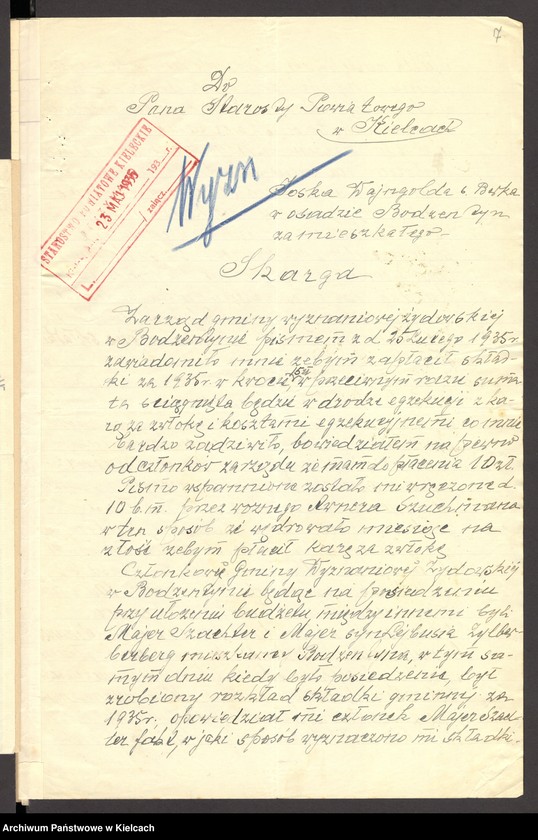 7
Do
Pana Starosty Powiatowego
w Kielcach
STAROSTWO POWIATOWE KIELECKIE
23 MAJ 1935
193 r.
załącz.
Wyzn
Joska Wajngolda s Berka
w osadzie Bodzentyn
zamieszkałego
Skarga
Zarząd gminy wyznaniowej żydowskiej
w Bodzentynie pismem z d 25 lutego 1935 r
zawiadomiło mnie żebym zapłacił skład-
ki za 1935 r w kwocie 15 zł w przeciwnym razie suma
ta ściągnięta będzie w drodze egzekucji z ka-
rą za zwłokę i kosztami egzekucyjnemi, co mnie
bardzo zadziwiło, bo wiedziałem na pewno
od członków zarządu że mam do płacenia 10 zł.
Pismo wspomniane zostało mi wręczone d.
10 b.m. przez woznego Arnera Szuchmana
w ten sposób że wędrowało miesiące na
złość żebym płacił karę za zwłokę
Członkowie Gminy Wyznaniowej Żydowskiej
w Bodzentynie będąc na posiedzeniu
przy ułożeniu budżetu, między innemi byli
Majer Szachter i Majer syn Lejbusia Zylber-
berberg mieszkaniec Bodzentyna, w tym sa-
mym dniu kiedy było posiedzenie, był
zrobiony rozkład składki gminnej za
1935 r. opowiedział mi członek Majer Szach-
ter fakt, w jaki sposób wyznaczono mi składki.
Archiwum Państwowe w Kielcach